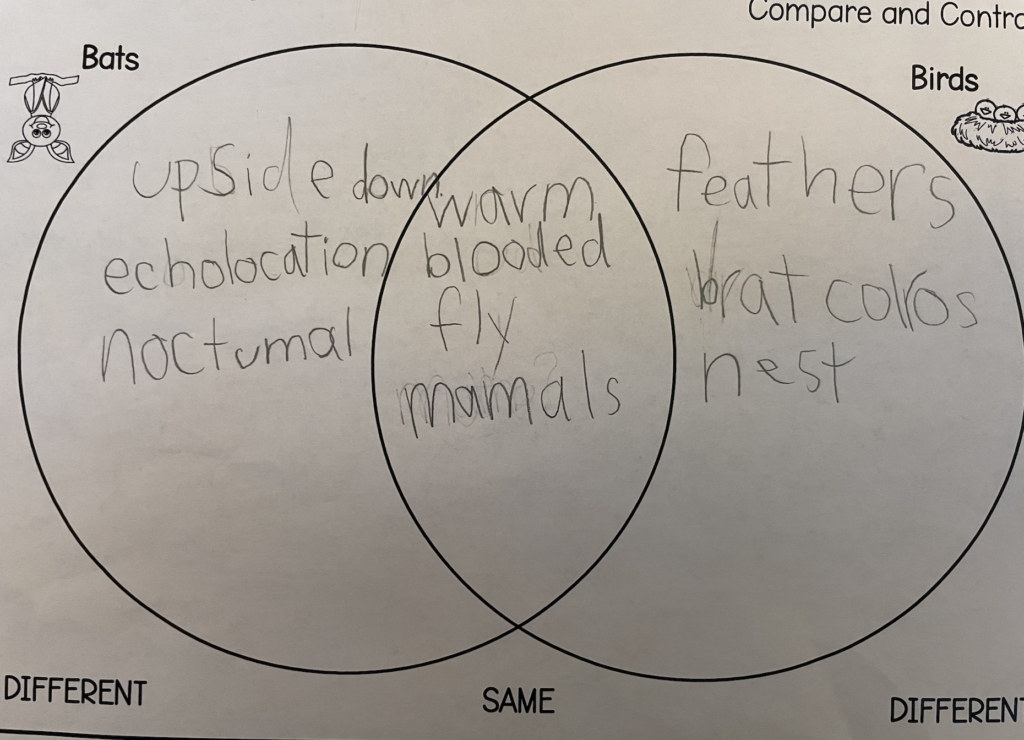 Compare and Contra
Bats
Birds
upside down
echolocation
nocturnal
warm
blooded
fly
mamals
feathers
brat colros
nest
DIFFERENT
SAME
DIFFERENT